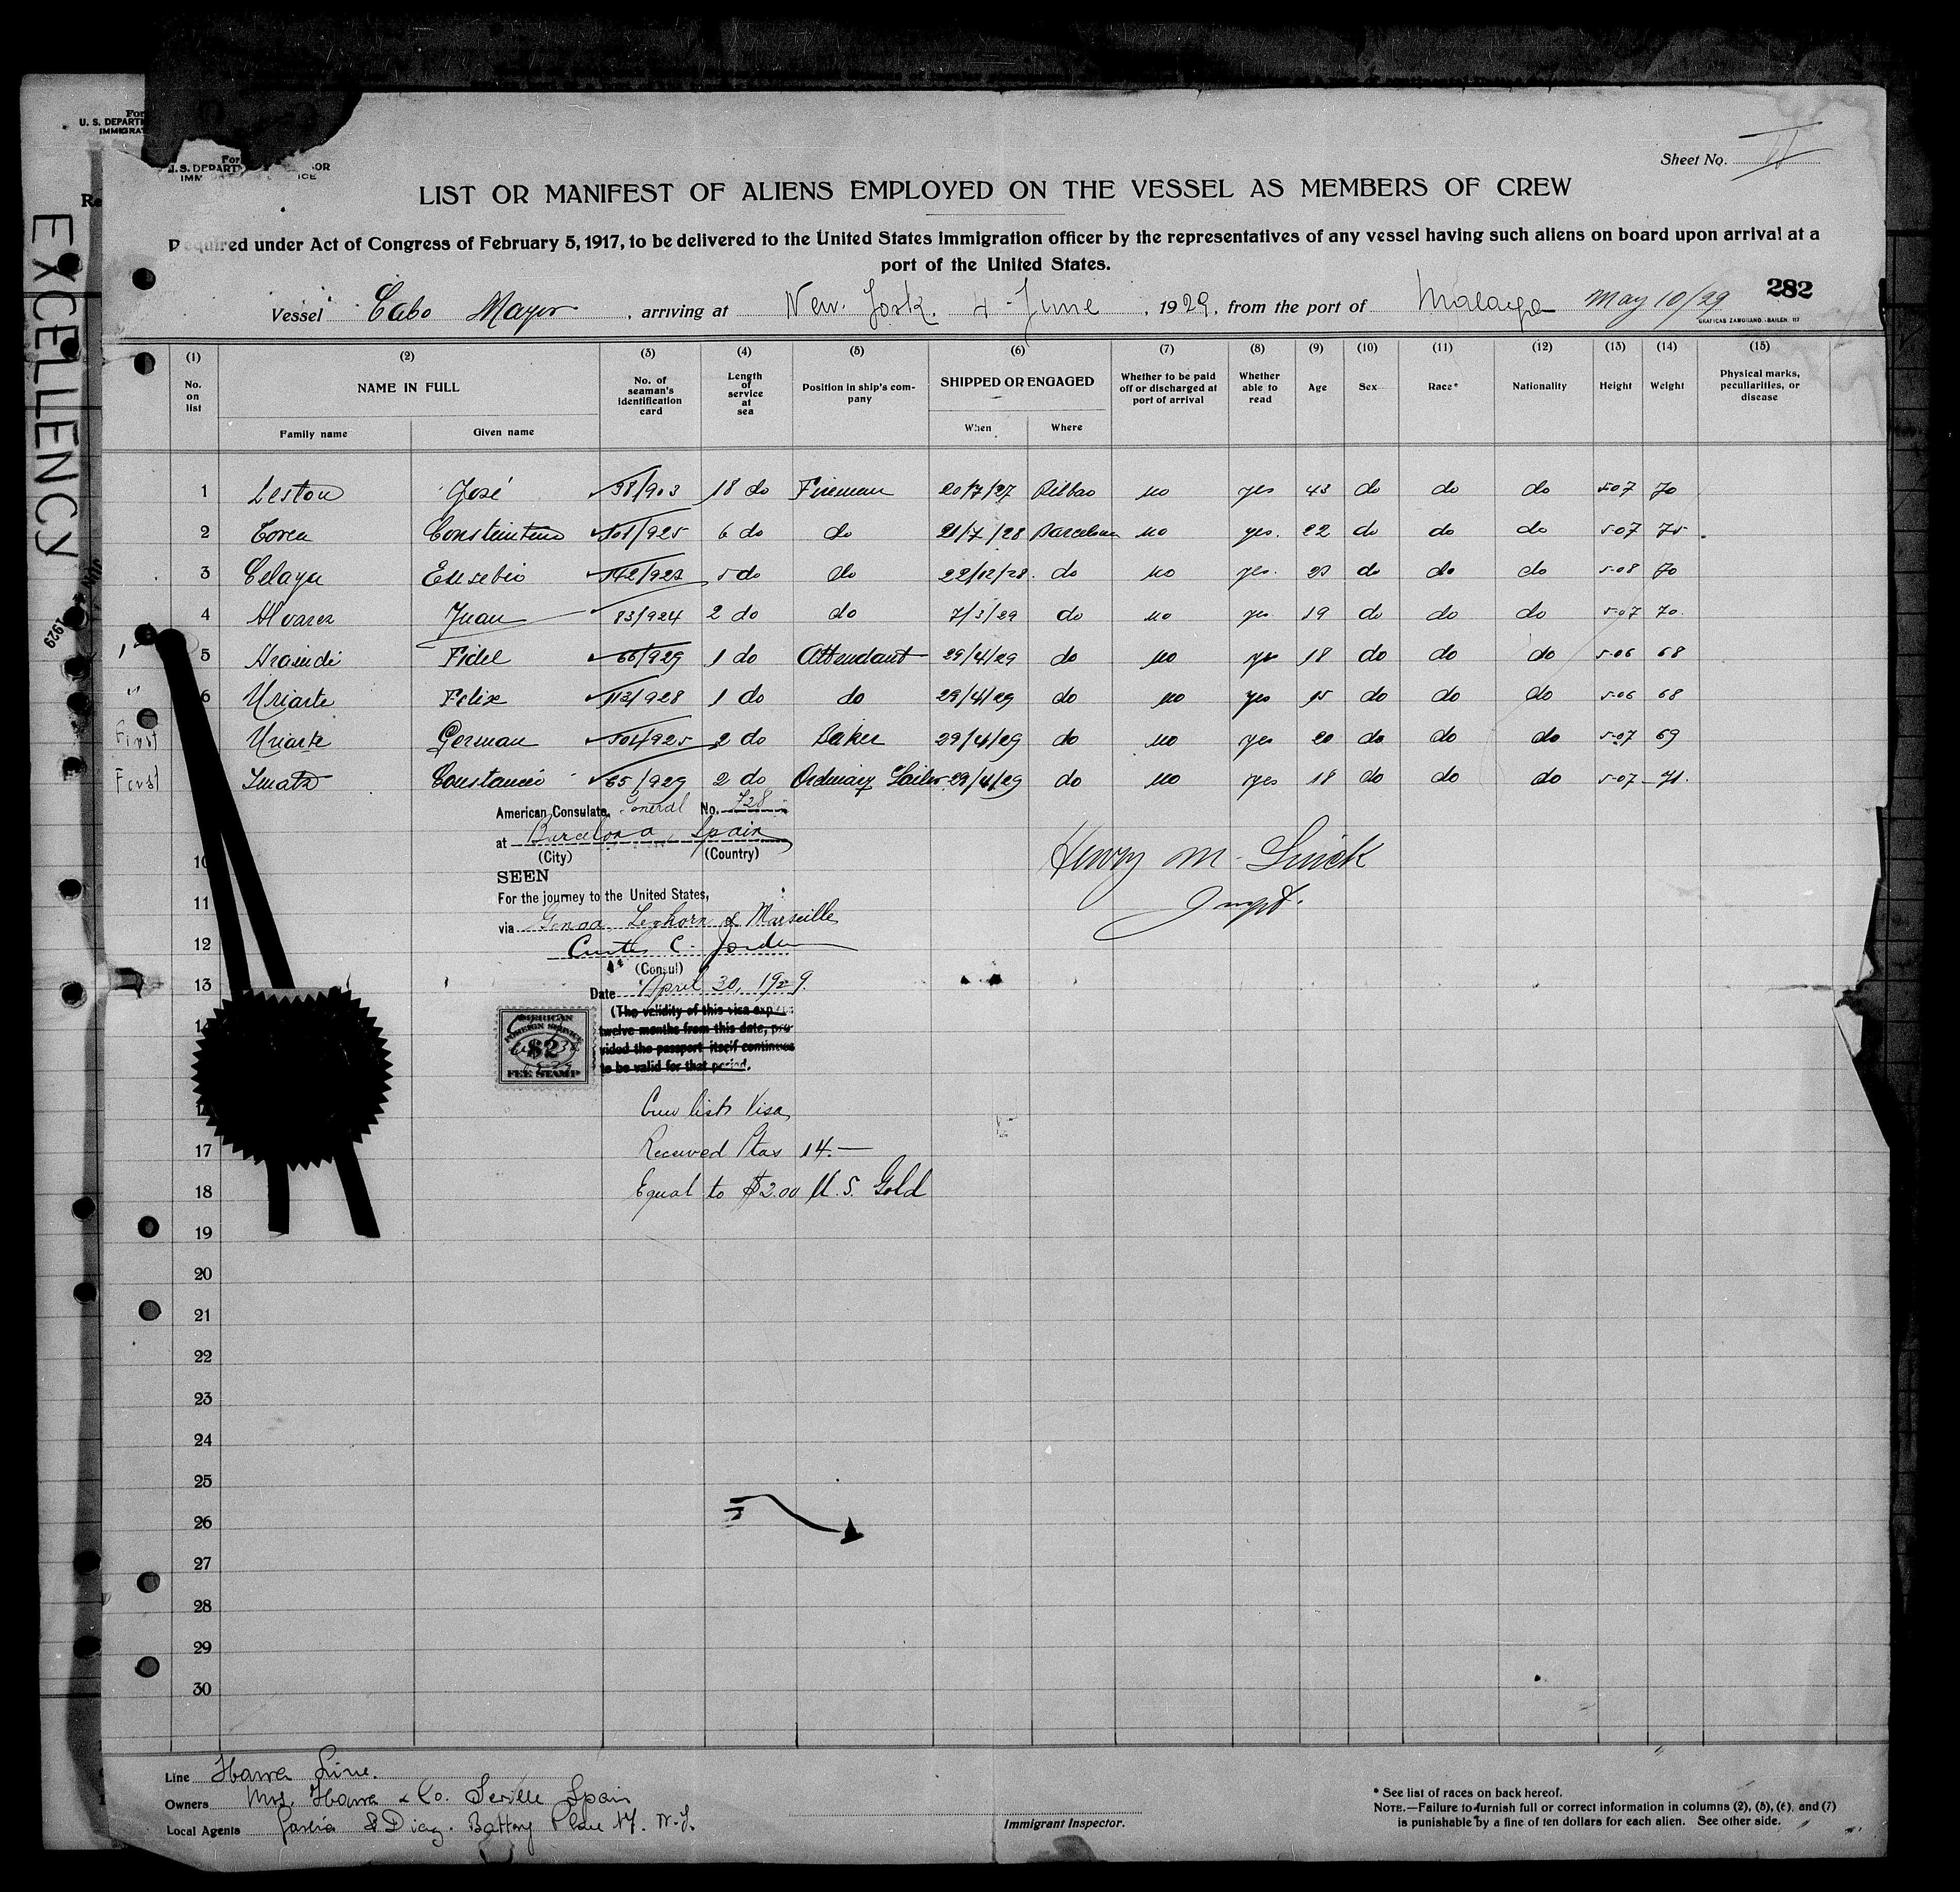 For
U. S. DEPARTM
IMMIGRAT
For
U. S. DEPART OR
IMM ICE
Re
EXCELLENCY
JUN 4 1929
Sheet No. II
LIST OR MANIFEST OF ALIENS EMPLOYED ON THE VESSEL AS MEMBERS OF CREW
Required under Act of Congress of February 5, 1917, to be delivered to the United States Immigration officer by the representatives of any vessel having such aliens on board upon arrival at a
port of the United States.
282
Vessel Cabo Mayor, arriving at New York. 4 June, 1929, from the port of Malaga May 10/29
GRAFICAS ZAMORANO.-BAILÉN, 117
(1) (2) (3) (4) (5) (6) (7) (8) (9) (10) (11) (12) (13) (14) (15)
No. on list NAME IN FULL No. of seaman's identification card Length of service at sea Position in ship's company SHIPPED OR ENGAGED Whether to be paid off or discharged at port of arrival Whether able to read Age Sex Race* Nationality Height Weight Physical marks, peculiarities, or disease
Family name Given name When Where
1 Leston José 38/903 18 do Fireman 20/7/27 Bilbao no yes 43 do do do 5-07 70
2 Torea Constantino 101/925 6 do do 21/7/28 Barcelona no yes. 22 do do do 5-07 75
3 Celaya Eusebio 142/923 5 do do 22/12/28. do no yes. 23 do do do 5-08 70
4 Alvarez Juan 83/924 2 do do 7/3/29 do no yes 19 do do do 5-07 70.
5 Fidel 66/929 1 do Attendant 29/4/29 do no yes 18 do do do 5-06 68
6 Uriarte Felix 113/928 1 do do 29/4/29 do no yes 15 do do do 5-06 68
First Uriarte German 501/925 2 do Baker 29/4/29 do no yes 20 do do do 5-07 69
First Constancio 65/929 2 do Ordinary Sailor 29/4/29 do no yes 18 do do do 5-07 71.
American Consulate General No. 728
at Barcelona, Spain
(City) (Country)
SEEN
For the journey to the United States,
via Genoa, Leghorn & Marseille
Curtis C. Jordan
(Consul)
Date April 30, 1929.
(The validity of this visa expires
twelve months from this date, pro-
vided the passport itself continues
to be valid for that period.
AMERICAN
FOREIGN SERVICE
$2
FEE STAMP
Crew list Visa
Received Ptas 14.—
Equal to $2.00 U. S. Gold
Henry M.
Inspt.
10
11
12
13
17
18
19
20
21
22
23
24
25
26
27
28
29
30
Line Ybarra Line.
Owners Mrs. Ybarra & Co. Seville Spain
Local Agents Garcia & Diaz. Battery Place 17. N.Y.
Immigrant Inspector.
* See list of races on back hereof.
NOTE.—Failure to furnish full or correct information in columns (2), (5), (6), and (7)
is punishable by a fine of ten dollars for each alien. See other side.